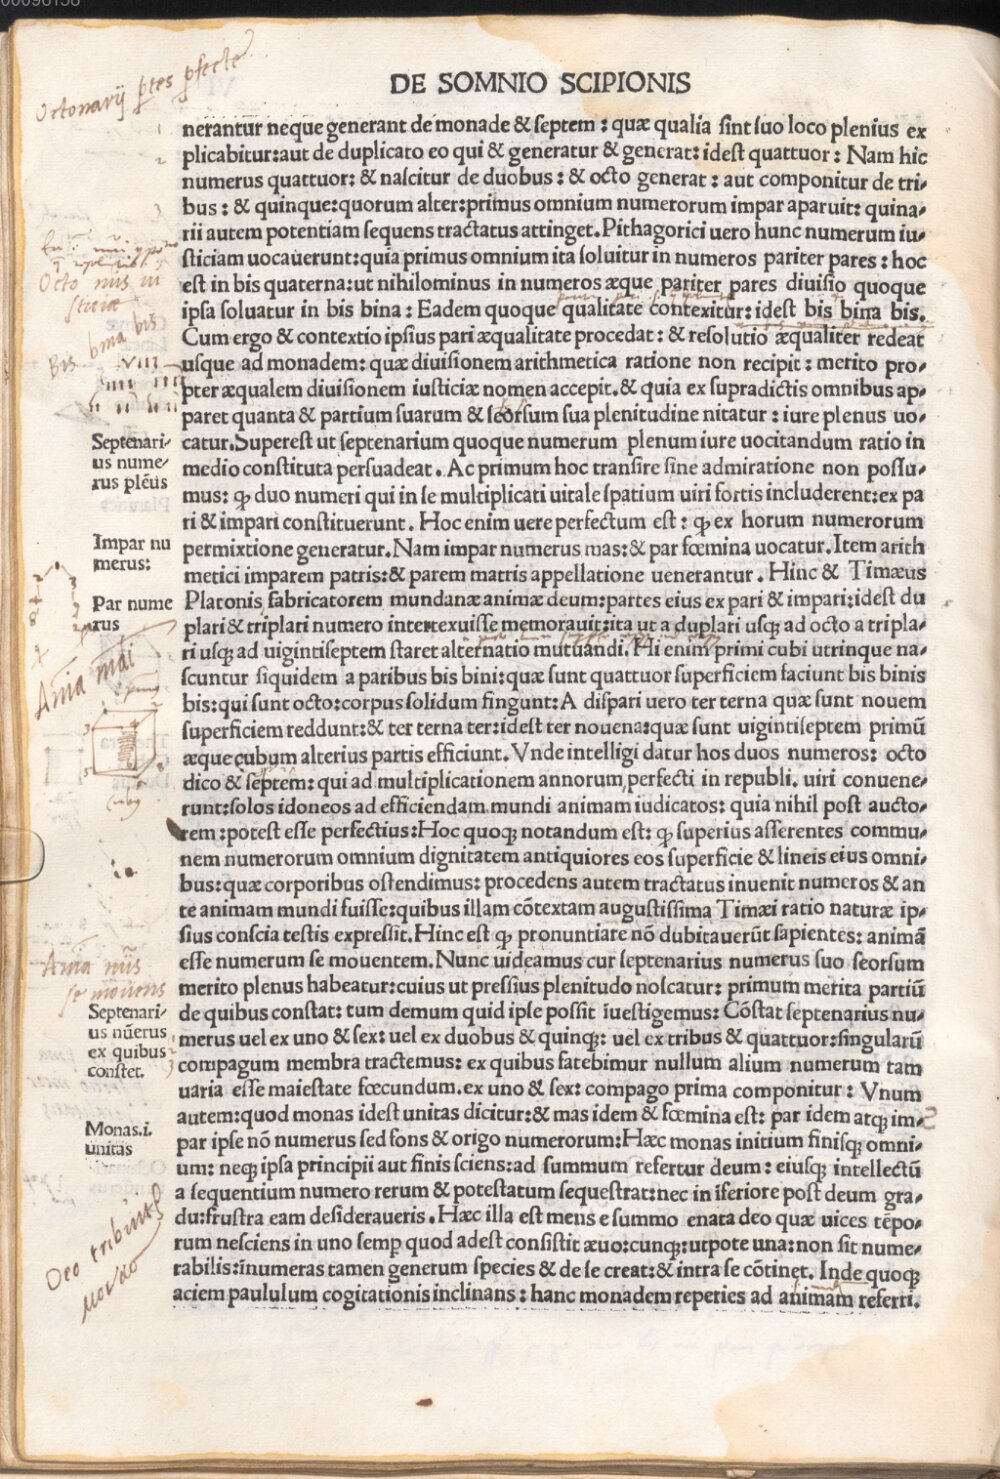 00096158
Octonarij
DE SOMNIO SCIPIONIS
nerantur neque generant de monade & septem : quæ qualia sint suo loco plenius ex
plicabitur:aut de duplicato eo qui & generatur & generat: idest quattuor : Nam hic
numerus quattuor: & nascitur de duobus : & octo generat : aut componitur de tri-
bus : & quinque:quorum alter:primus omnium numerorum impar aparuit: quina-
rii autem potentiam sequens tractatus attinget. Pithagorici uero hunc numerum iu-
sticiam uocauerunt:quia primus omnium ita soluitur in numeros pariter pares : hoc
est in bis quaterna:ut nihilominus in numeros æque pariter pares diuisio quoque
ipsa soluatur in bis bina : Eadem quoque qualitate contexitur: idest bis bina bis.
Cum ergo & contextio ipsius pari æqualitate procedat : & resolutio æqualiter redeat
usque ad monadem: quæ diuisionem arithmetica ratione non recipit : merito pro-
pter æqualem diuisionem iusticiæ nomen accepit.& quia ex supradictis omnibus ap-
paret quanta & partium suarum & seorsum sua plenitudine nitatur : iure plenus uo-
catur. Superest ut septenarium quoque numerum plenum iure uocitandum ratio in
medio constituta persuadeat. Ac primum hoc transire sine admiratione non possu-
mus: ꝙ duo numeri qui in se multiplicati uitale spatium uiri fortis includerent: ex pa
ri & impari constituerunt. Hoc enim uere perfectum est : ꝙ ex horum numerorum
permixtione generatur. Nam impar numerus mas:& par fœmina uocatur. Item arith
metici imparem patris:& parem matris appellatione uenerantur. Hinc & Timæus
Platonis fabricatorem mundanæ animæ deum:partes eius ex pari & impari:idest du
plari & triplari numero intertexuisse memorauit:ita ut a duplari usqꝫ ad octo a tripla-
ri usqꝫ ad uigintiseptem staret alternatio mutuandi. Hi enim primi cubi utrinque na-
scuntur siquidem a paribus bis bini:quæ sunt quattuor superficiem faciunt bis binis
bis:qui sunt octo:corpus solidum fingunt:A dispari uero ter terna quæ sunt nouem
superficiem reddunt:& ter terna ter:idest ter nouena:quæ sunt uigintiseptem primū
æque cubum alterius partis efficiunt. Vnde intelligi datur hos duos numeros: octo
dico & septem: qui ad multiplicationem annorum perfecti in republi. uiri conuene-
runt:solos idoneos ad efficiendam mundi animam iudicatos: quia nihil post aucto-
rem:potest esse perfectius:Hoc quoqꝫ notandum est: ꝙ superius asserentes commu-
nem numerorum omnium dignitatem antiquiores eos superficie & lineis eius omni-
bus:quæ corporibus ostendimus: procedens autem tractatus inuenit numeros & an
te animam mundi fuisse:quibus illam cōtextam augustissima Timæi ratio naturæ ip-
sius conscia testis expressit. Hinc est ꝙ pronuntiare nō dubitauerūt sapientes: animā
esse numerum se mouentem. Nunc uideamus cur septenarius numerus suo seorsum
merito plenus habeatur:cuius ut pressius plenitudo noscatur: primum merita partiū
de quibus constat: tum demum quid ipse possit īuestigemus: Cōstat septenarius nu-
merus uel ex uno & sex: uel ex duobus & quinqꝫ: uel ex tribus & quattuor:singularū
compagum membra tractemus: ex quibus fatebimur nullum alium numerum tam
uaria esse maiestate fœcundum. ex uno & sex: compago prima componitur : Vnum
autem:quod monas idest unitas dicitur:& mas idem & fœmina est: par idem atqꝫ im-
par ipse nō numerus sed fons & origo numerorum:Hæc monas initium finisqꝫ omni-
um: neqꝫ ipsa principii aut finis sciens:ad summum refertur deum: eiusqꝫ intellectū
a sequentium numero rerum & potestatum sequestrat:nec in īferiore post deum gra-
du:frustra eam desideraueris. Hæc illa est mens e summo enata deo quæ uices tēpo-
rum nesciens in uno semp quod adest consistit æuo:cunqꝫ:utpote una: non sit nume-
rabilis:īnumeras tamen generum species & de se creat:& intra se cōtinet. Inde quoqꝫ
aciem paululum cogitationis inclinans : hanc monadem reperies ad animam referri.
Octo
Bis bina bis
VIII
Septenari-
us nume-
rus plēus
Impar nu
merus:
Par nume
rus
Aīa
Aīa
se mouens
Septenari-
us nūerus
ex quibus
constet.
Monas.i.
unitas
Deo